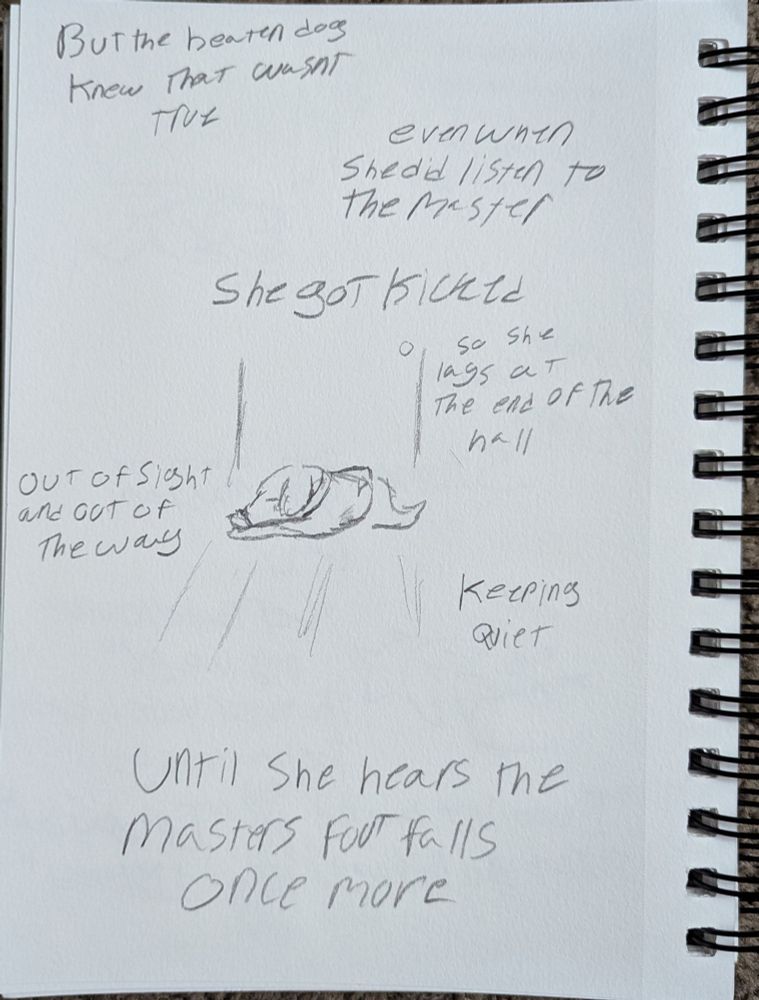 But the beaten dog
knew that wasnt
true
even when
she did listen to
the master
She got kicked
so she
lays at
the end of the
hall
out of sight
and out of
the way
Keeping
quiet
Until she hears the
Masters foot falls
once more